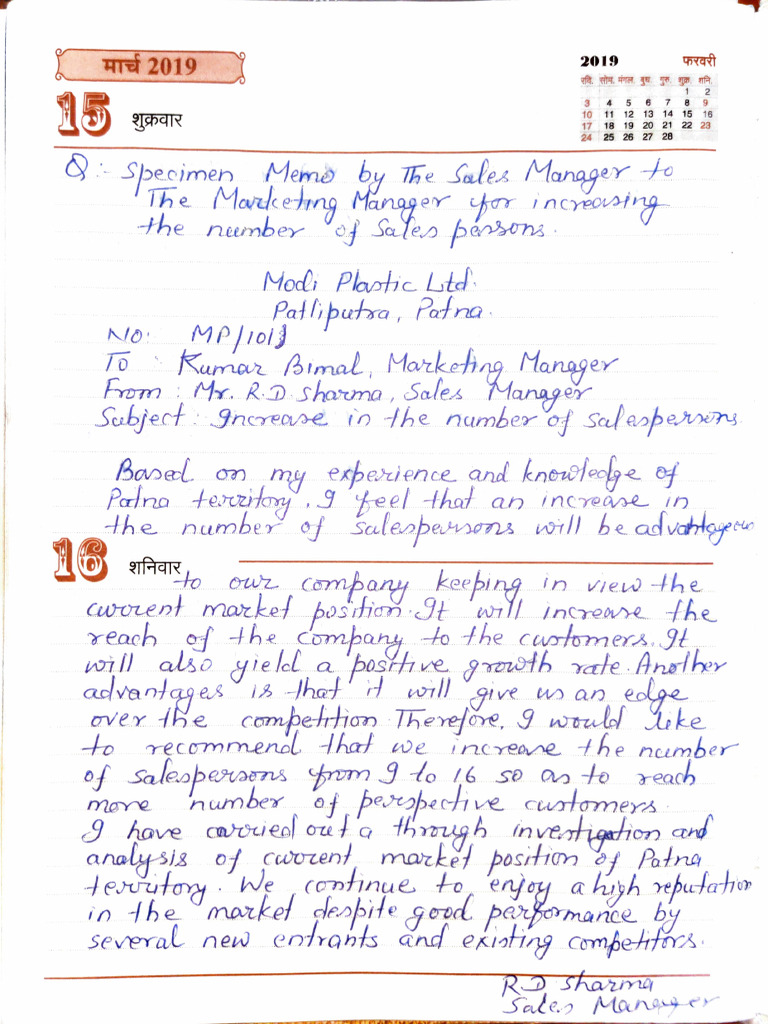 मार्च 2019
2019 फरवरी
रवि. सोम. मंगल. बुध. गुरु. शुक्र. शनि.
1 2
3 4 5 6 7 8 9
10 11 12 13 14 15 16
17 18 19 20 21 22 23
24 25 26 27 28
15 शुक्रवार
Q:- Specimen Memo by The Sales Manager to
The Marketing Manager for increasing
the number of Sales persons.
Modi Plastic Ltd.
Patliputra, Patna.
No: MP/101
To : Kumar Bimal, Marketing Manager
From : Mr. R.D Sharma, Sales Manager
Subject : Increase in the number of salespersons.
Based on my experience and knowledge of
Patna territory, I feel that an increase in
the number of salespersons will be advantageous
16 शनिवार
to our company keeping in view the
current market position. It will increase the
reach of the company to the customers. It
will also yield a positive growth rate. Another
advantages is that it will give us an edge
over the competition. Therefore, I would like
to recommend that we increase the number
of salespersons from 9 to 16 so as to reach
more number of perspective customers.
I have carried out a through investigation and
analysis of current market position of Patna
territory. We continue to enjoy a high reputation
in the market despite good performance by
several new entrants and existing competitors.
R.D Sharma
Sales Manager